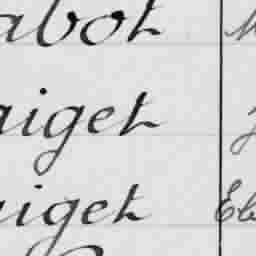 abot
aiget
aiget El